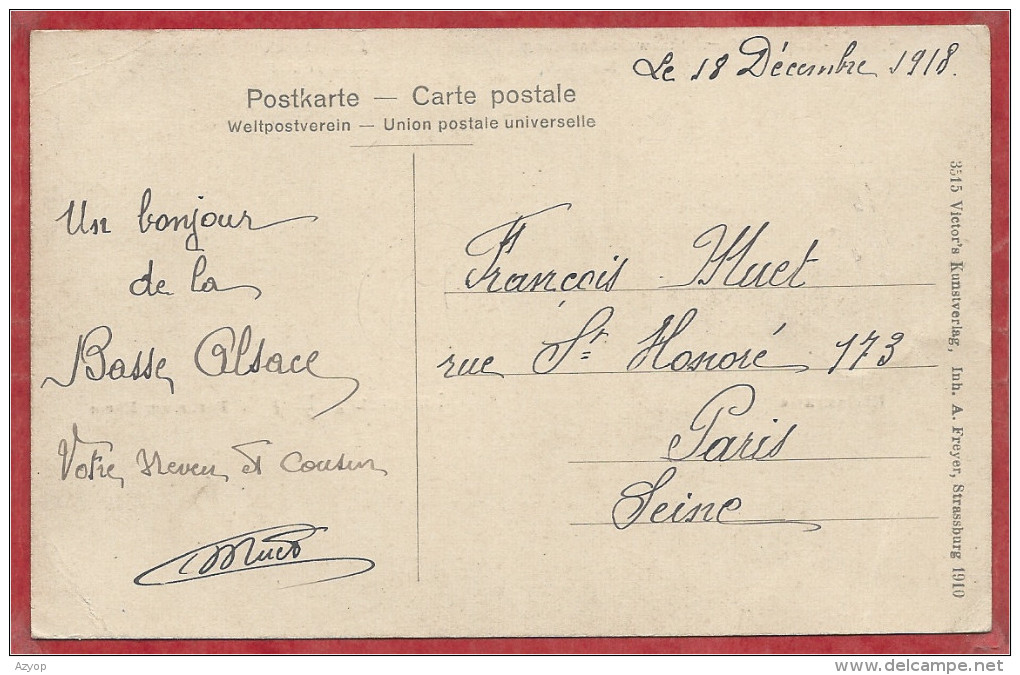 Le 18 Décembre 1918.
Postkarte — Carte postale
Weltpostverein — Union postale universelle
Un bonjour
de la
Basse Alsace
Votre Neveu et Cousin
Huet
François Huet
rue St Honoré 173
Paris
Seine
3515 Victor's Kunstverlag, Inh. A. Freyer, Strassburg 1910
Azyop
www.delcampe.net